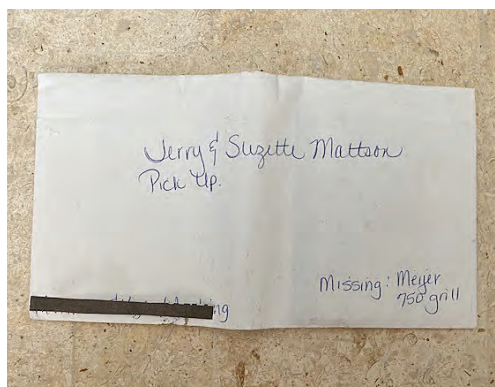 Jerry & Suzette Mattson
Pick Up.
Missing: Meijer
750 grill